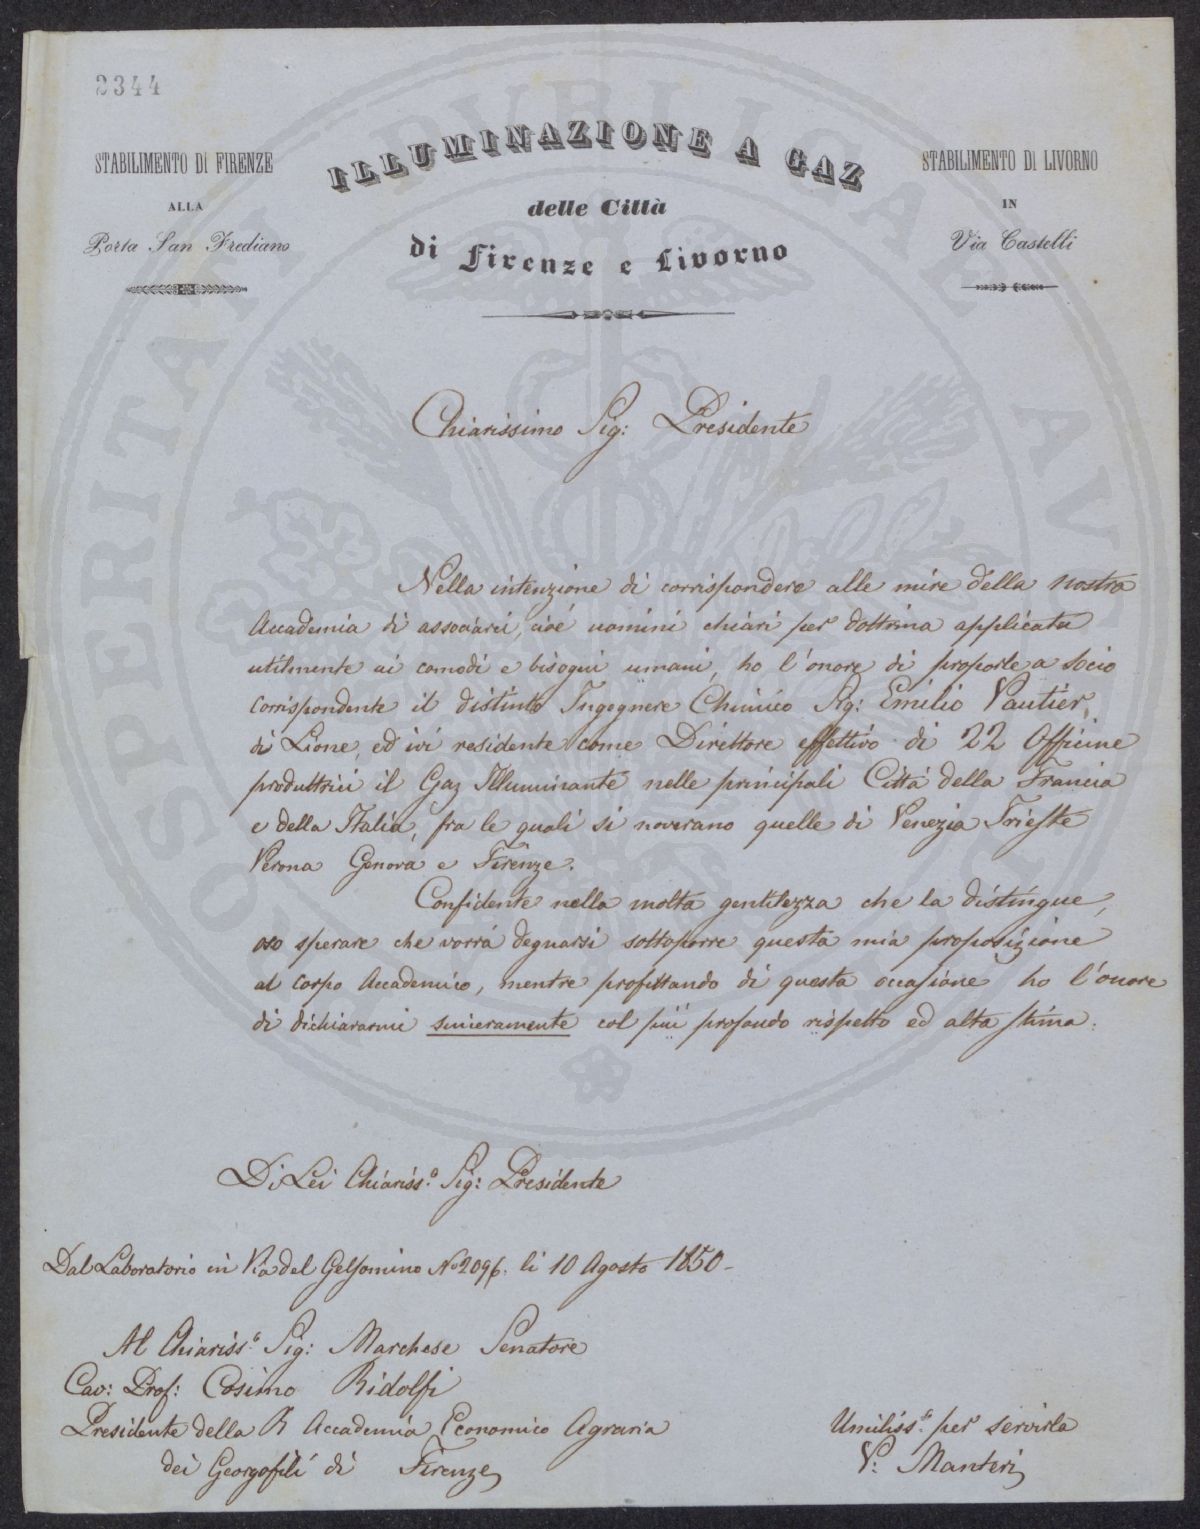 2344
STABILIMENTO DI FIRENZE
ALLA
Porta San Frediano
ILLUMINAZIONE A GAZ
delle Città
di Firenze e Livorno
STABILIMENTO DI LIVORNO
IN
Via Castelli
Chiarissimo Sig: Presidente
Nella intenzione di corrispondere alle mire della nostra
Accademia di associarii, cioé uomini chiari per dottrina applicata
utilmente ai comodi e bisogni umani, ho l'onore di proporle a socio
corrispondente il distinto Ingegnere Chimico Sig: Emilio Vautier,
di Lione, ed ivi residente come Direttore effettivo di 22 Officine
produttrici il Gaz Illuminante nelle principali Cittá della Francia
e della Italia, fra le quali si noverano quelle di Venezia Trieste
Verona Genova e Firenze.
Confidente nella molta gentilezza che la distingue,
oso sperare che vorrá degnarsi sottoporre questa mia proposizione
al Corpo Accademico, mentre profittando di questa occasione ho l'onore
di dichiararmi sinceramente col piú profondo rispetto ed alta stima.
Di Lei Chiariss.º Sig: Presidente
Dal Laboratorio in Via del Gelsomino Nº 2096. li 10 Agosto 1850 -
Al Chiariss.º Sig: Marchese Senatore
Cav: Prof: Cosimo Ridolfi
Presidente della R Accademia Economico Agraria
dei Georgofili di Firenze
Umiliss.º per servirla
V: Manteri
SPERITATI PUBLICAE AU